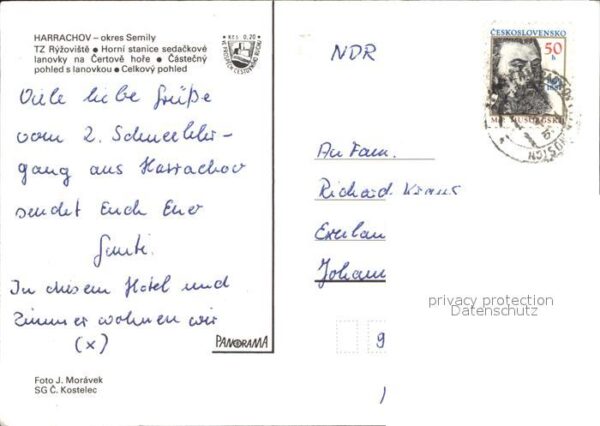 HARRACHOV – okres Semily
TZ Rýžoviště ● Horní stanice sedačkové
lanovky na Čertově hoře ● Částečný
pohled s lanovkou ● Celkový pohled
Kčs 0,20
Viele liebe Grüße
vom 2.
gang aus Harrachov
sendet Euch Euer
In diesem Hotel und
Zimmer wohnen wir
(x)
PANORAMA
Foto J. Morávek
SG Č. Kostelec
NDR
ČESKOSLOVENSKO
50
h
An Fam.
Richard Kraus
Johann
privacy protection
Datenschutz
9